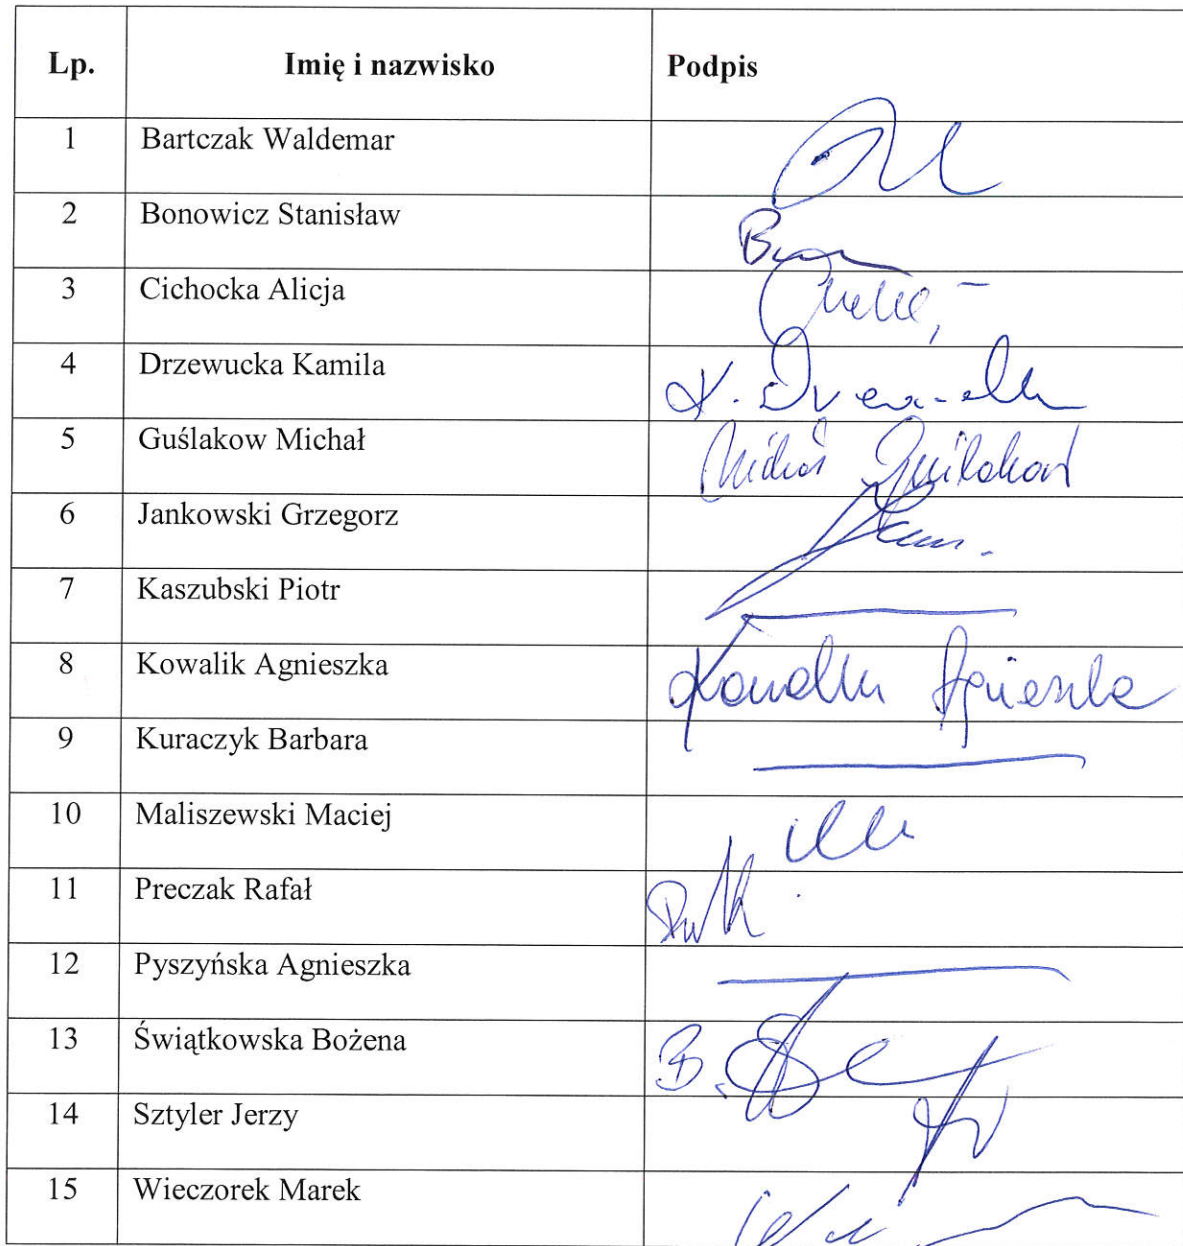 Lp. Imię i nazwisko Podpis
1 Bartczak Waldemar
2 Bonowicz Stanisław
3 Cichocka Alicja
4 Drzewucka Kamila
5 Guślakow Michał Michał Guślakow
6 Jankowski Grzegorz
7 Kaszubski Piotr
8 Kowalik Agnieszka Kowalik Agnieszka
9 Kuraczyk Barbara
10 Maliszewski Maciej
11 Preczak Rafał
12 Pyszyńska Agnieszka
13 Świątkowska Bożena
14 Sztyler Jerzy
15 Wieczorek Marek